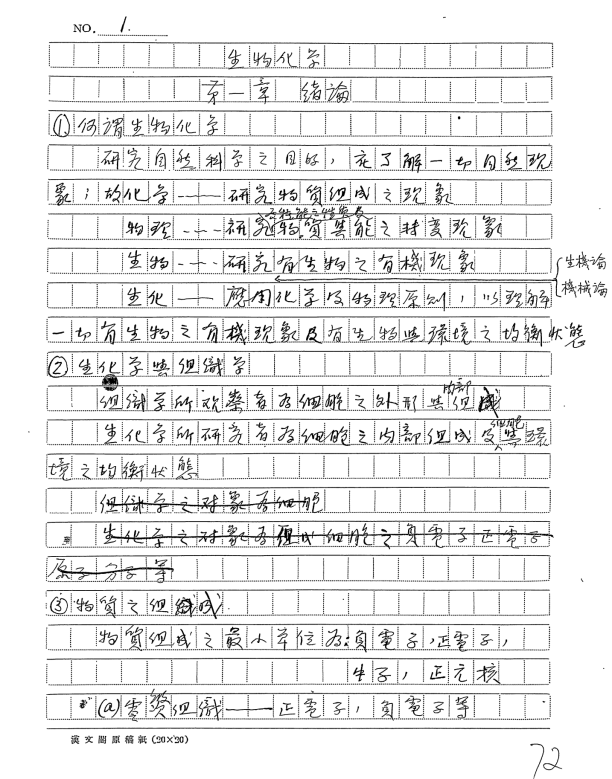 NO. 1.
生物化学
第一章 緒論
① 何謂生物化学
研究自然科学之目的，在了解一切自然現
象；故化学——研究物質組成之現象
物理----研究物質與能之轉變現象
生物----研究有生物之有機現象
生機論
機械論
生化——應用化学及物理原則，以理解
一切有生物之有機現象及有生物與環境之均衡狀態
② 生化学與組織学
組織学所观察者為細胞之外形與內部組成
生化学所研究者為細胞之內部組成及細胞與環
境之均衡狀態
組織学之对象為細胞
生化学之对象為組成細胞之負電子正電子
原子分子等
③ 物質之組成
物質組成之最小單位為：負電子，正電子，
生子，正元核
(a) 電組織——正電子，負電子等
漢文閣原稿紙 (20×20)
72